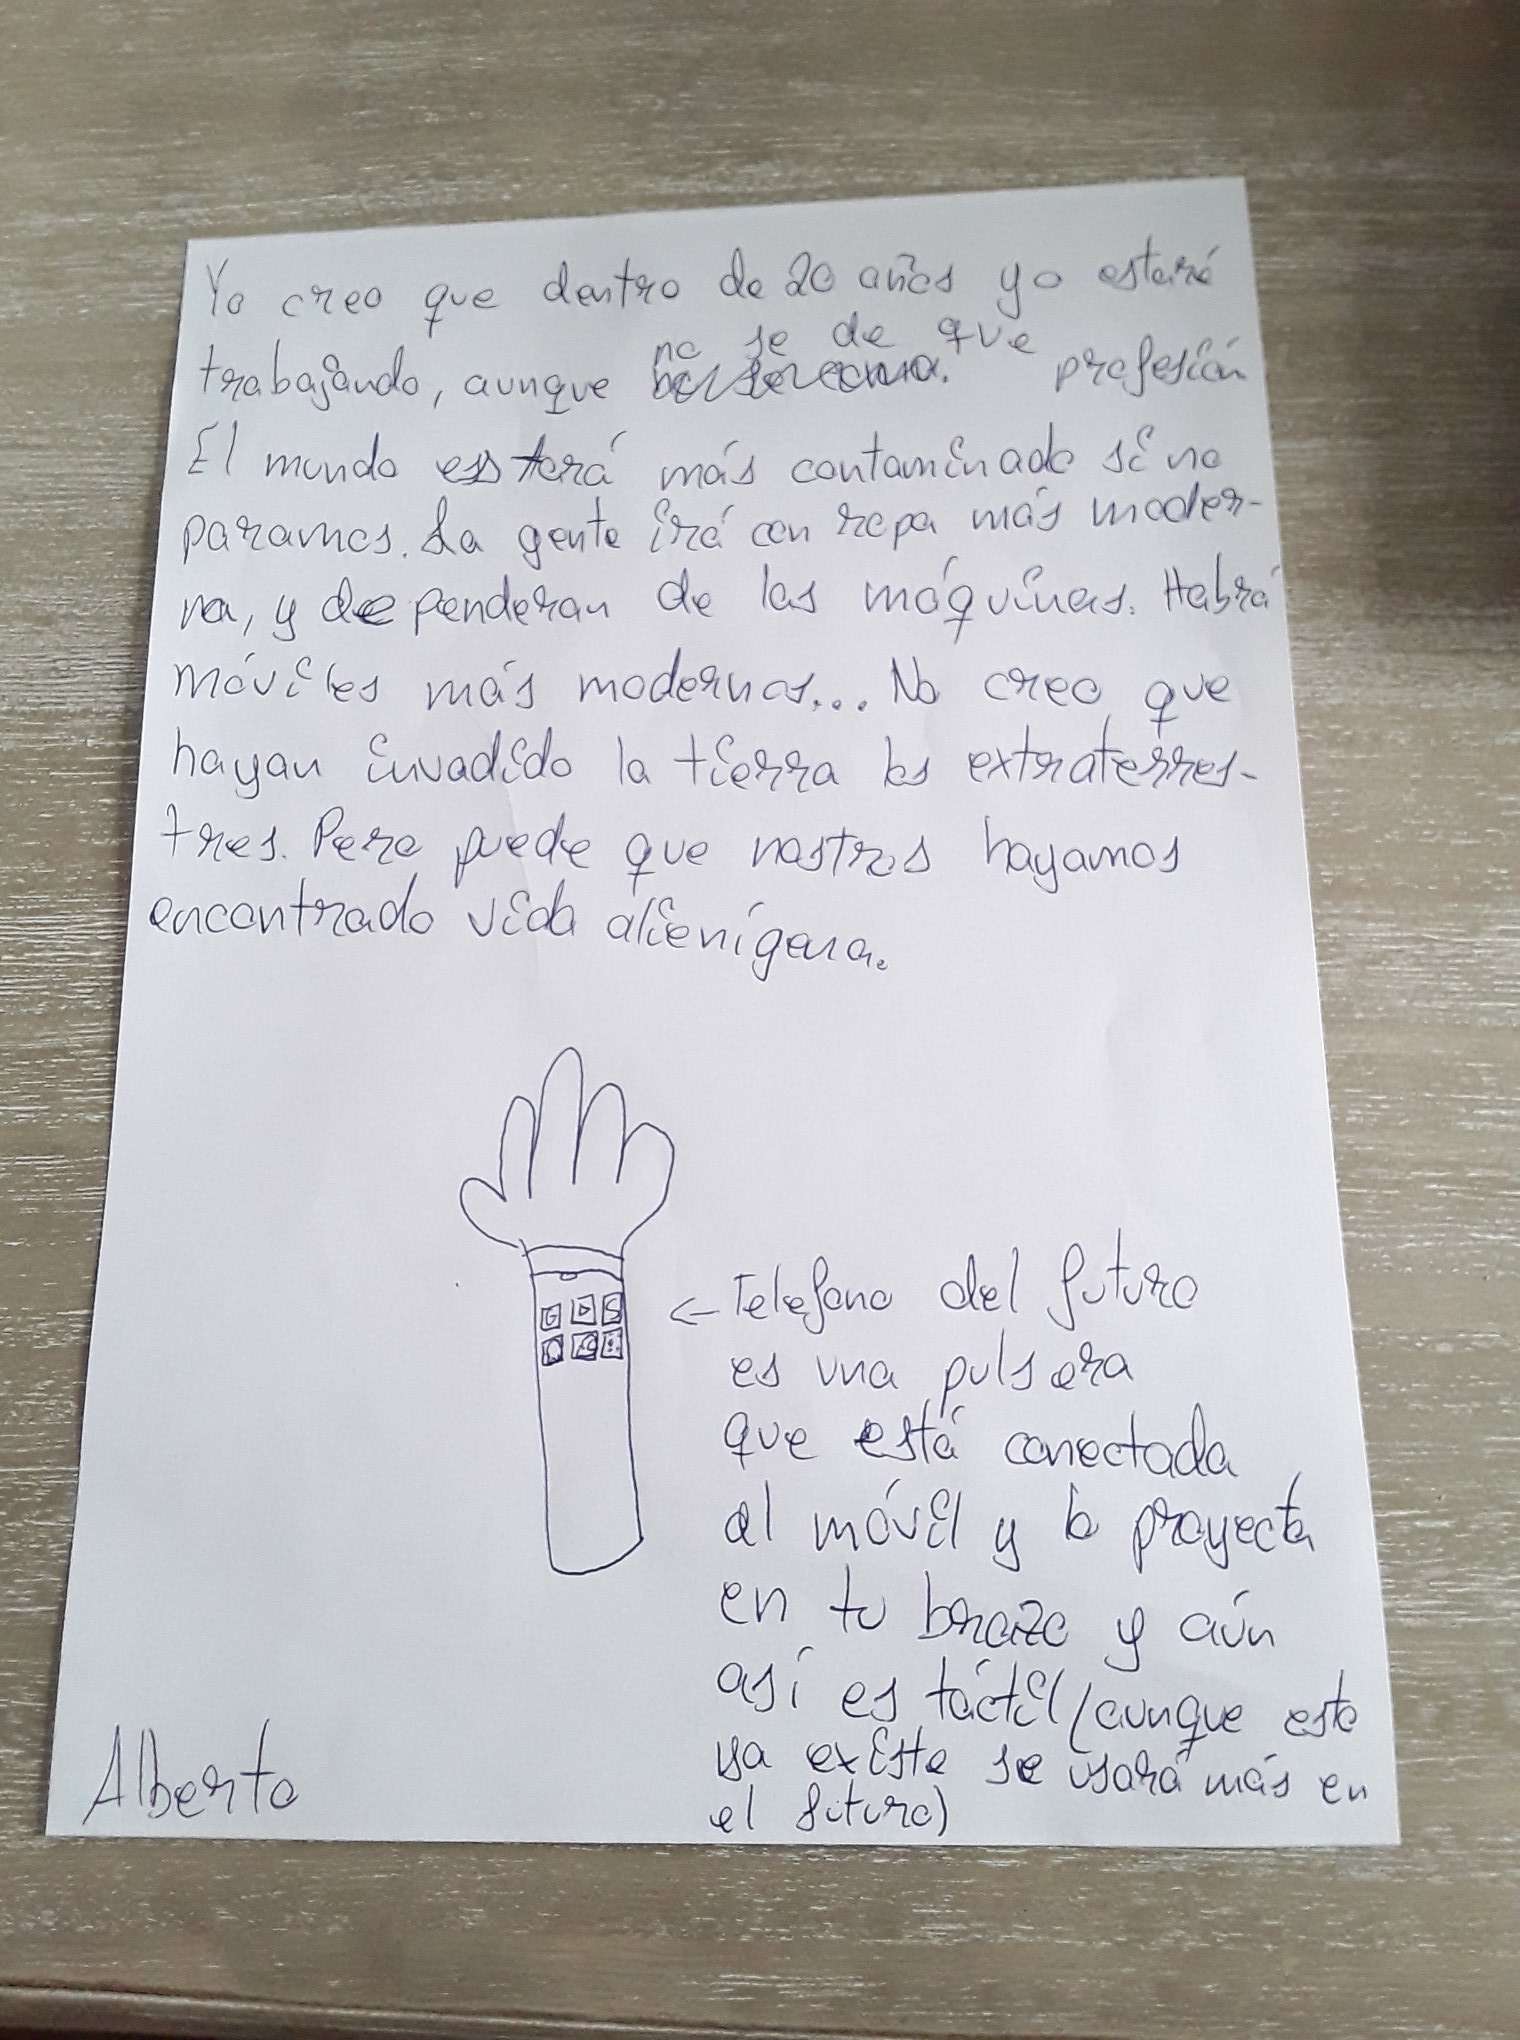 Yo creo que dentro de 20 años yo estaré
trabajando, aunque no se de que profesión
El mundo estará más contaminado si no
paramos. La gente irá con ropa más moder-
na, y dependeran de las máquinas. Habrá
móviles más modernos... No creo que
hayan invadido la tierra los extraterres-
tres. Pero puede que nostros hayamos
encontrado vida alienígena.
G S
← Telefono del futuro
es una pulsera
que está conectada
al móvil y lo proyecta
en tu brazo y aún
así es táctil (aunque esto
ya existe se usará más en
el futuro)
Alberto